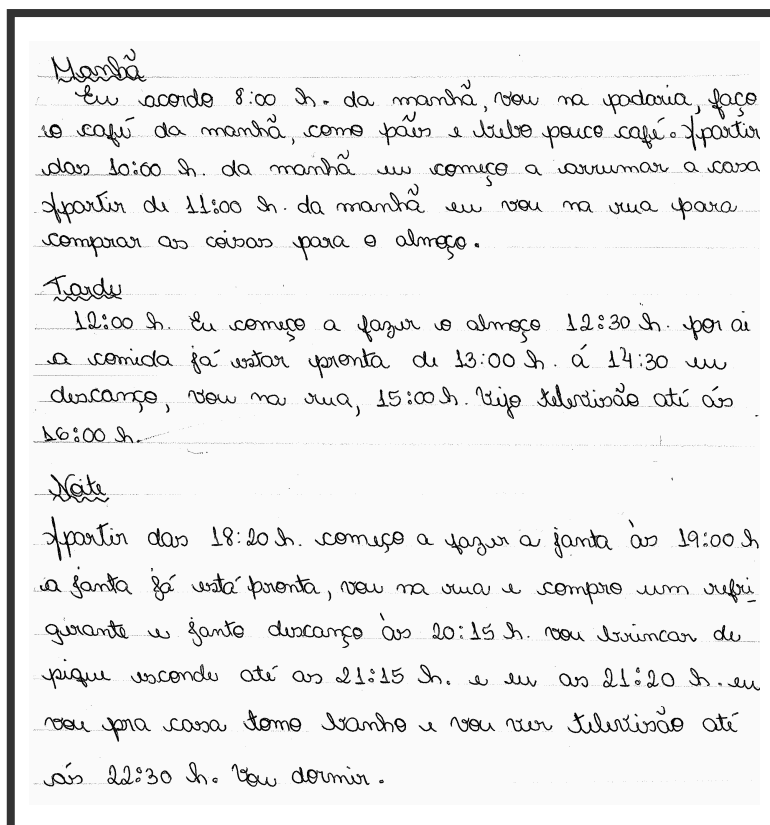 Manhã
Eu acordo 8:00 h. da manhã, vou na padaria, faço
o café da manhã, como pães e bebo pouco café. Apartir
das 10:00 h. da manhã eu começo a arrumar a casa
Apartir de 11:00 h. da manhã eu vou na rua para
comprar as coisas para o almoço.
Tarde
12:00 h. Eu começo a fazer o almoço 12:30 h. por ai
a comida já estar pronta de 13:00 h. á 14:30 eu
descanço, vou na rua, 15:00 h. Vejo televisão até ás
16:00 h.
Noite
Apartir das 18:20 h. começo a fazer a janta às 19:00 h
a janta já está pronta, vou na rua e compro um refri
gerante e janto descanço às 20:15 h. vou brincar de
pique esconde até as 21:15 h. e eu as 21:20 h. eu
vou pra casa tomo banho e vou ver televisão até
ás 22:30 h. Vou dormir.